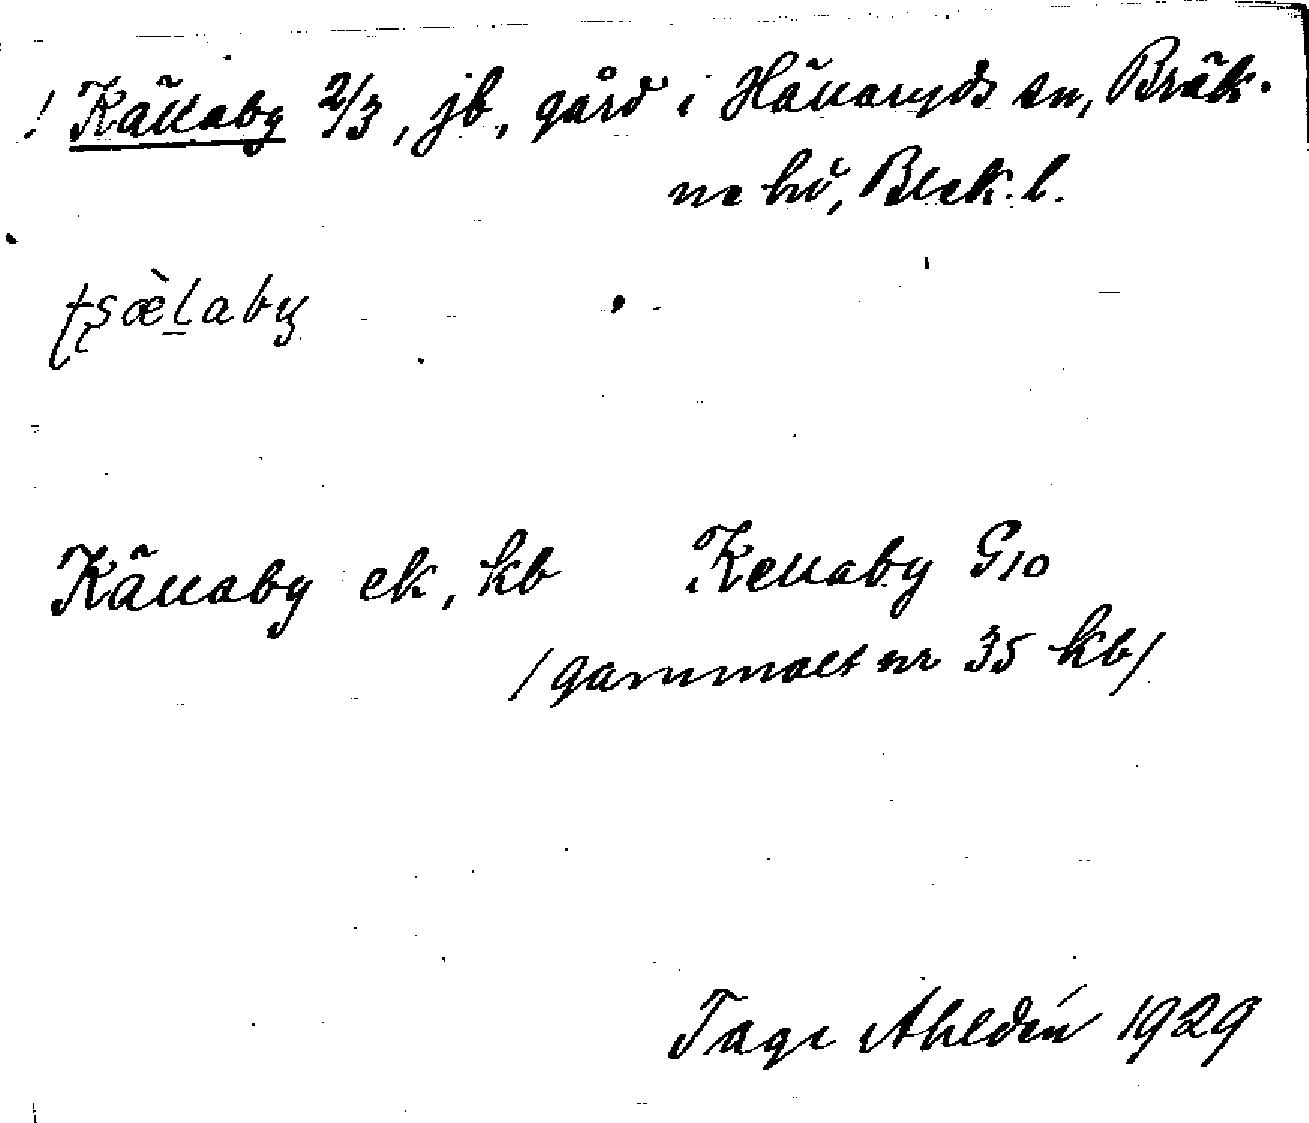 ! Källaby 2/3, jb, gård i Hällaryds sn, Bräk-
ne hd, Blek. l.
ʈʂæ̀l̠aby
Källaby ek, kb Kellaby G10
/gammalt nr 35 kb/
Tage Ahldén 1929